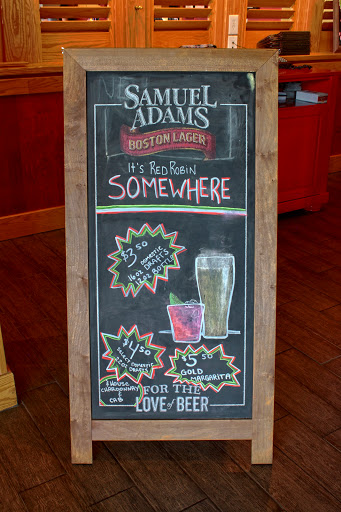 SAMUEL
ADAMS
BOSTON LAGER
IT'S RED ROBIN
SOMEWHERE
$3.50
DOMESTIC
16OZ DRAFTS
12OZ BOTTLE
$4.50
SELECT DOMESTIC
22OZ DRAFTS
$5.50
GOLD
MARGARITA
HOUSE
CHARDONNAY
&
CAB
FOR THE
LOVE of BEER